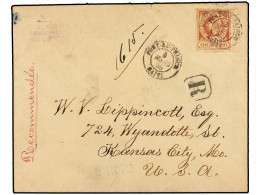 615.
PORT-AU-PRINCE
HAITI
R
Recommandée.
W. V. Lippincott, Esq.
724, Wyandotte, St.
Kansas City, Mo.
U. S. A.